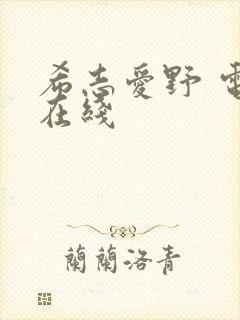 希志愛野 電
在綫
蘭蘭洛青